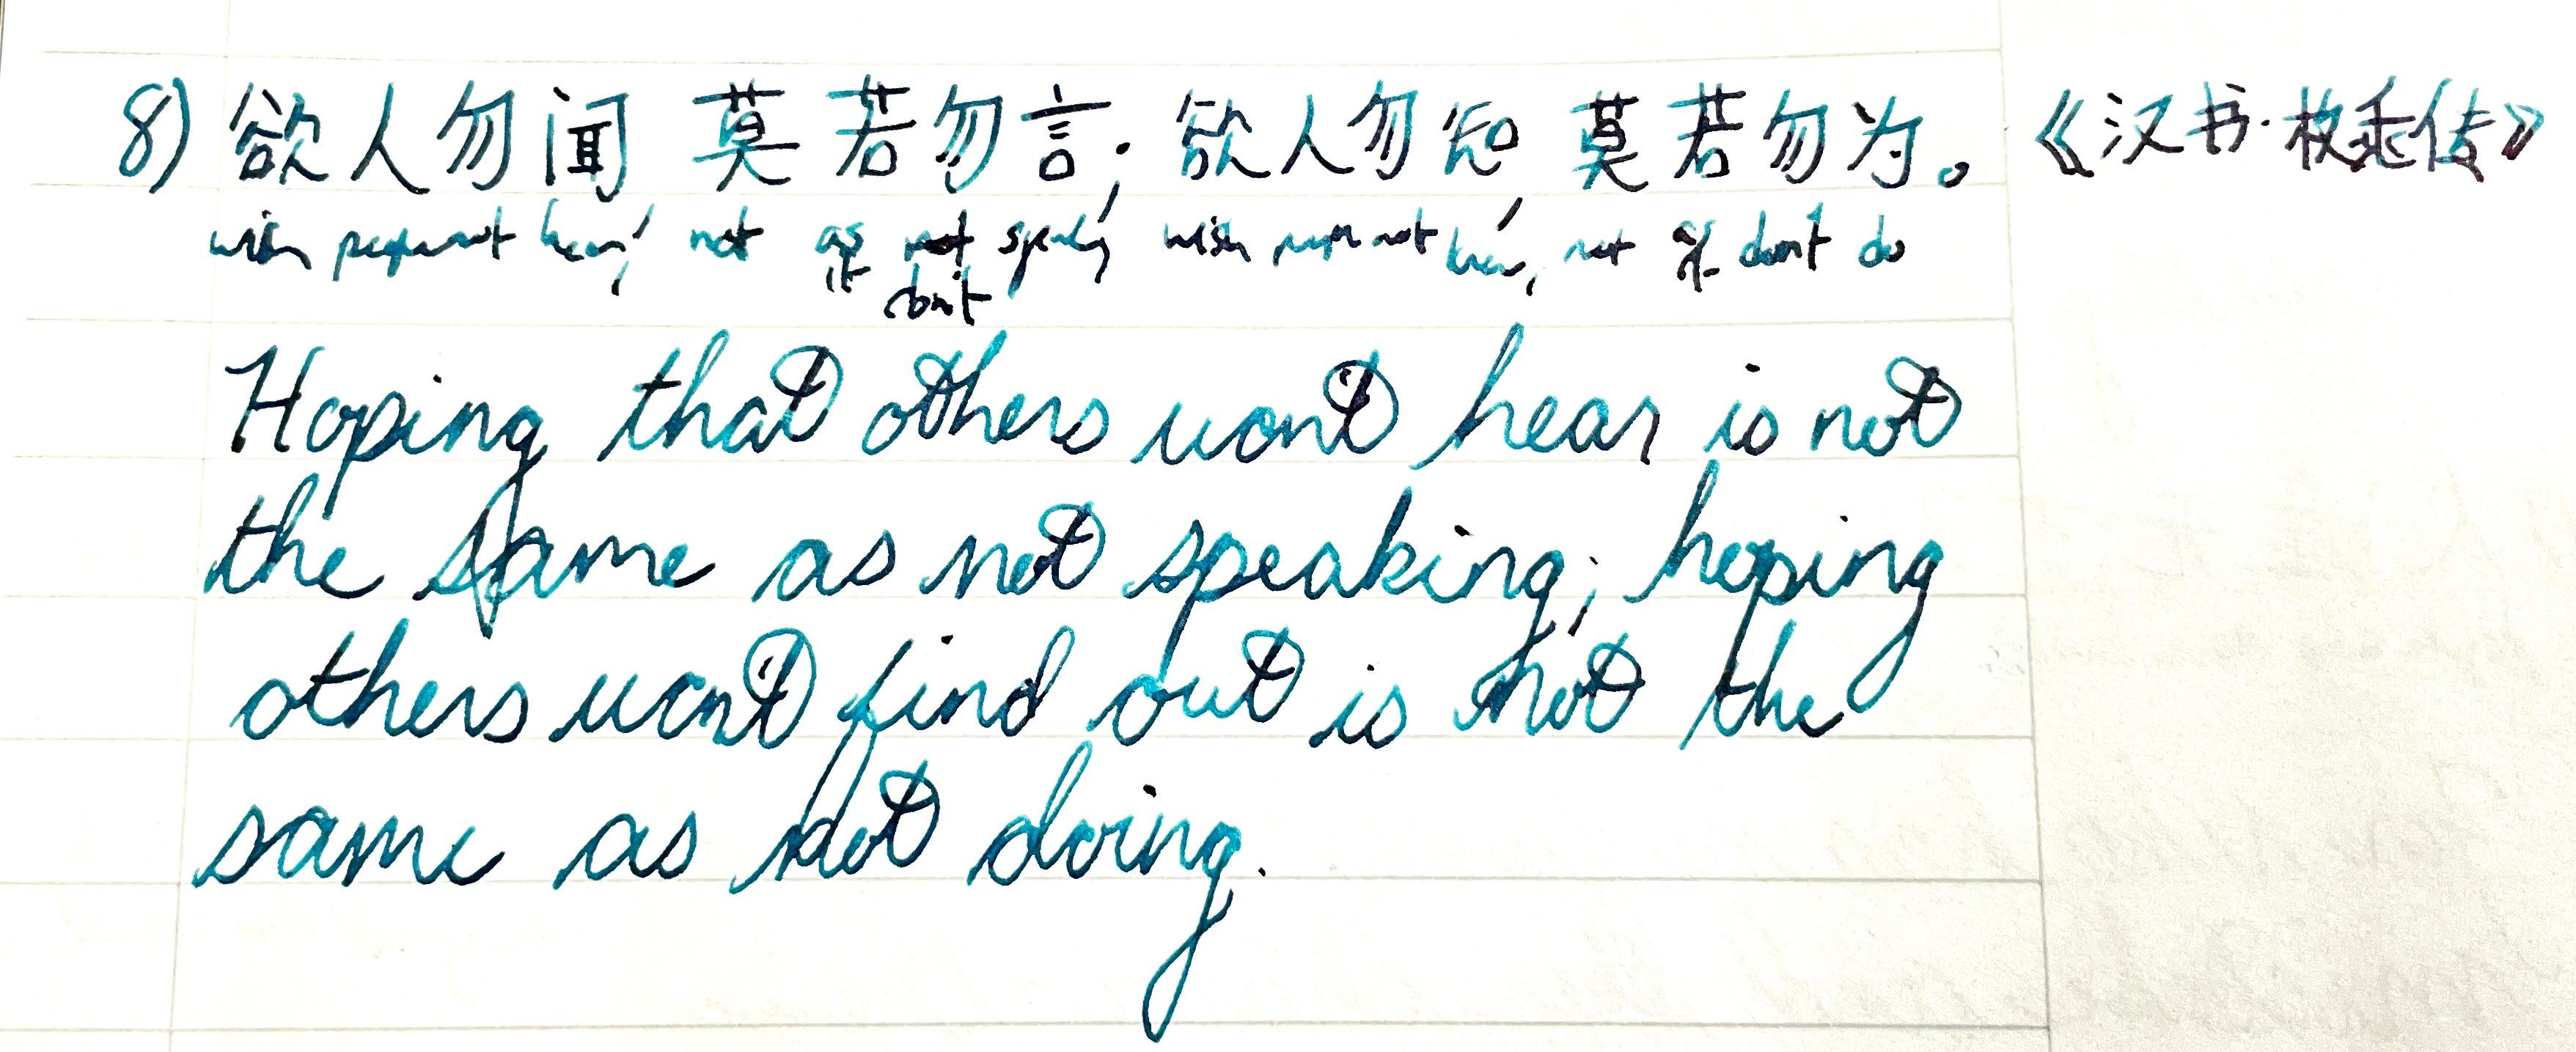 8) 欲人勿闻 莫若勿言; 欲人勿知 莫若勿为。《汉书·枚乘传》
wish people not hear, not as not speak, wish people not know, not as don't do
if don't
Hoping that others won't hear is not
the same as not speaking; hoping
others won't find out is not the
same as not doing.